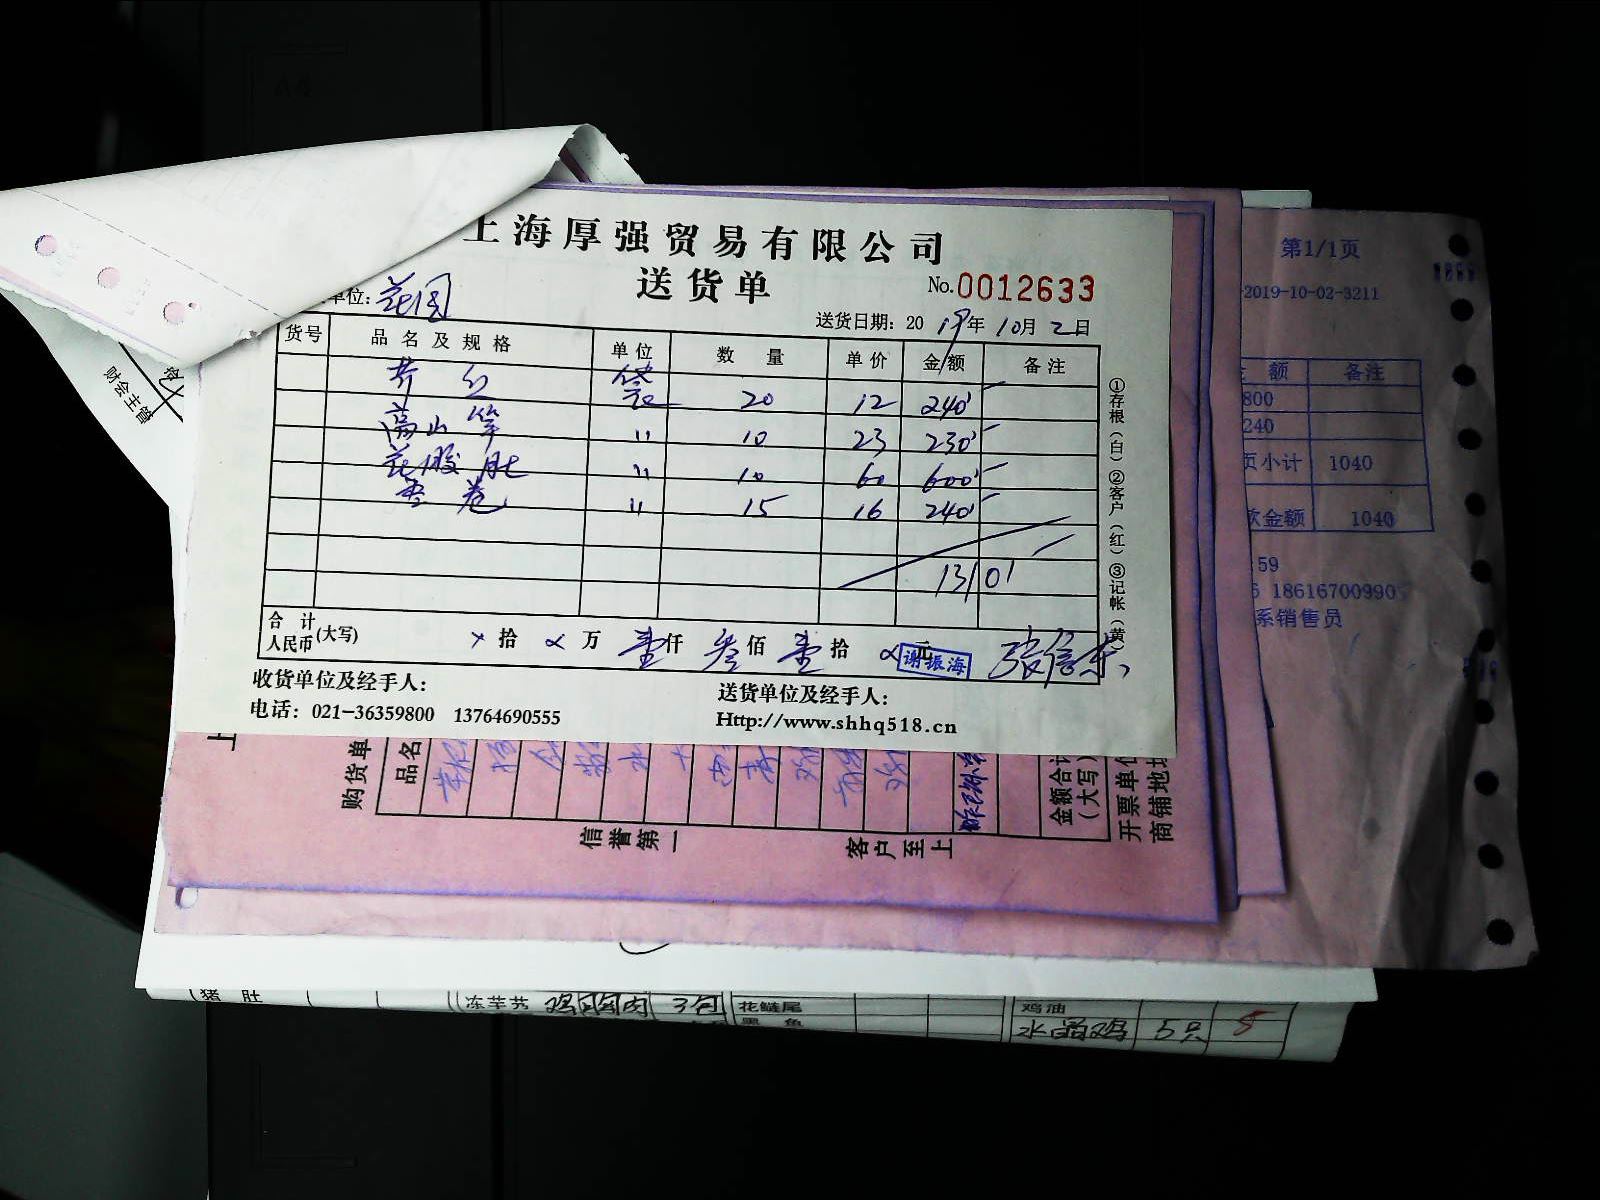 上海厚强贸易有限公司
送货单
No.0012633
单位：花园
送货日期：2019年10月2日
货号 品名及规格 单位 数量 单价 金额 备注
袋 20 12 240
高山笋 〃 10 23 230
花胶肚 〃 10 60 600
蛋卷 〃 15 16 240
1310
合计人民币(大写) × 拾 × 万 壹仟 叁佰 壹拾 × 元
谢振海
收货单位及经手人：
送货单位及经手人：
电话：021-36359800 13764690555
Http://www.shhq518.cn
①存根（白）②客户（红）③记帐（黄）
第1/1页
-2019-10-02-3211
额 备注
800
240
页小计 1040
金额 1040
59
18616700990
系销售员
财会主管
上
购货单
品名
金额合计
(大写)
开票单位
商铺地址
信誉第一
客户至上
猪肚
冻芋艿 鸡胸肉 3包
花鲢尾
黑鱼
鸡油
水晶鸡 5只 5